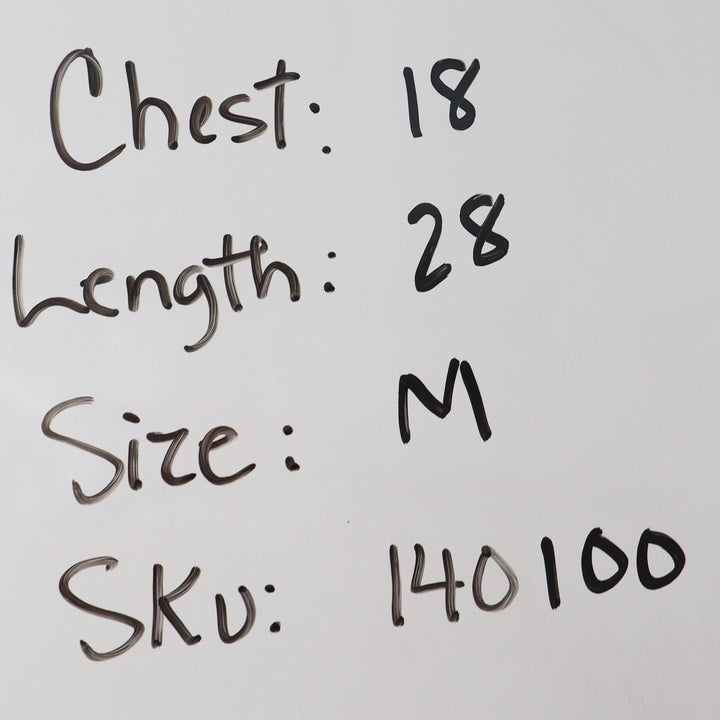 Chest: 18
Length: 28
Size: M
SKU: 140100